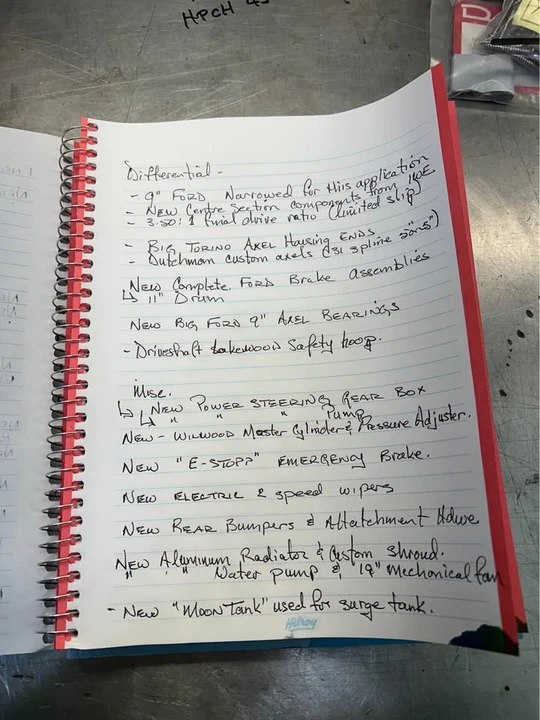 HPCH
Differential -
- 9" FORD Narrowed for this application
- NEW Centre section components from
- 3.50:1 final drive ratio (limited slip)
- BIG TORINO AXEL Housing ENDS
- Dutchman custom axels (31 spline
NEW Complete FORD Brake Assemblies
↳ 11" Drum
NEW BIG FORD 9" AXEL BEARINGS
- Driveshaft Lakewood Safety hoop.
Misc.
↳ NEW POWER STEERING GEAR BOX
↳ " " " Pump
NEW - WILWOOD Master Cylinder & Pressure Adjuster.
NEW "E-STOPP" EMERGENCY Brake.
NEW ELECTRIC 2 speed wipers
NEW REAR Bumpers & Attatchment Hdwe
NEW Aluminum Radiator & Custom shroud.
" " Water pump & Mechanical fan
- NEW "MOON TANK" used for surge tank.
Hilroy